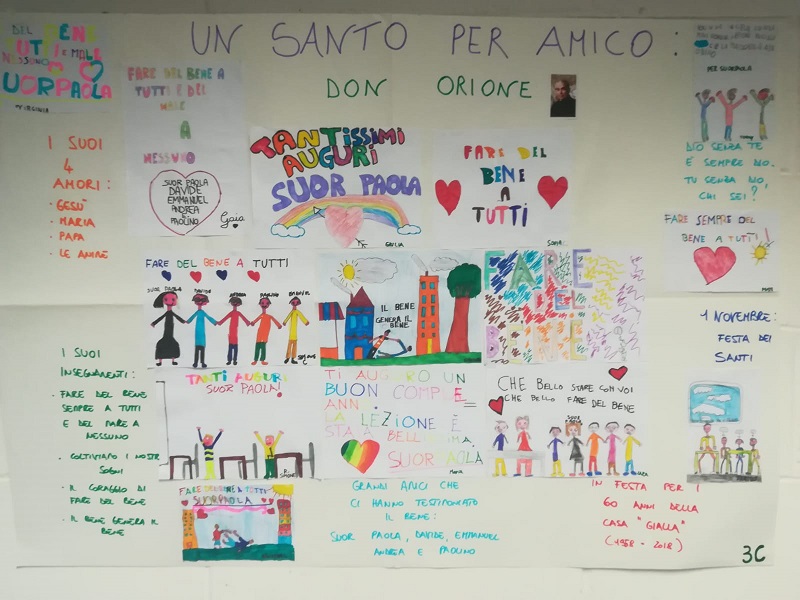 UN SANTO PER AMICO:
DON ORIONE
DEL BENE
TUTTI E MALE
NESSUNO
SUORPAOLA
VIRGINIA
I SUOI
4
AMORI:
· GESÙ
· MARIA
· PAPA
· LE ANIME
I SUOI
INSEGNAMENTI:
· FARE DEL BENE
SEMPRE A TUTTI
E DEL MALE A
NESSUNO
· COLTIVIAMO I NOSTRI
SOGNI
· IL CORAGGIO DI
FARE DEL BENE
· IL BENE GENERA IL
BENE
FARE DEL BENE A
TUTTI E DEL
MALE
A
NESSUNO
SUOR PAOLA
DAVIDE
EMMANUEL
ANDREA
E
PAOLINO
Gaia
TANTISSIMI
AUGURI
SUOR PAOLA
GIULIA
FARE DEL
BENE
A
TUTTI
SOFIA
FARE DEL BENE A TUTTI
SUOR PAOLA DAVIDE ANDREA PAOLINO
IL BENE
GENERA IL
BENE
FARE
DEL
BENE
TANTI AUGURI
SUOR PAOLA!
TI AUGURO UN
BUON COMPLE
ANNI
LA LEZIONE È
STATA BELLISSIMA
SUOR PAOLA
CHE BELLO STARE CON VOI
CHE BELLO FARE DEL BENE
FARE DEL BENE A TUTTI
SUORPAOLA
GRANDI AMICI CHE
CI HANNO TESTIMONIATO
IL BENE:
SUOR PAOLA, DAVIDE, EMMANUEL
ANDREA E PAOLINO
PER SUORPAOLA
DIO SENZA TE
E SEMPRE DIO.
TU SENZA DIO,
CHI SEI?
FARE SEMPRE DEL
BENE A TUTTI!
1 NOVEMBRE:
FESTA DEI
SANTI
IN FESTA PER I
60 ANNI DELLA
CASA "GIALLA"
(1958 - 2018)
3C